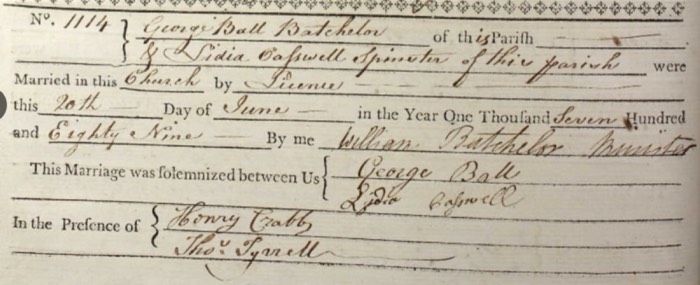 No. 1114 } George Ball Batchelor of this Parish
& Lidia Casswell Spinster of this parish were
Married in this Church by Licence
this 20th Day of June in the Year One Thousand Seven Hundred
and Eighty Nine By me William Batchelor Minister
This Marriage was solemnized between Us { George Ball
Lidia Casswell
In the Presence of { Henry Crabb
Thos. Tyrrell